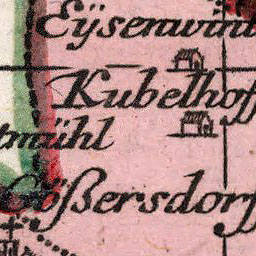 Eÿsenwind
Kubelhoff
tmühl
Gößersdorff